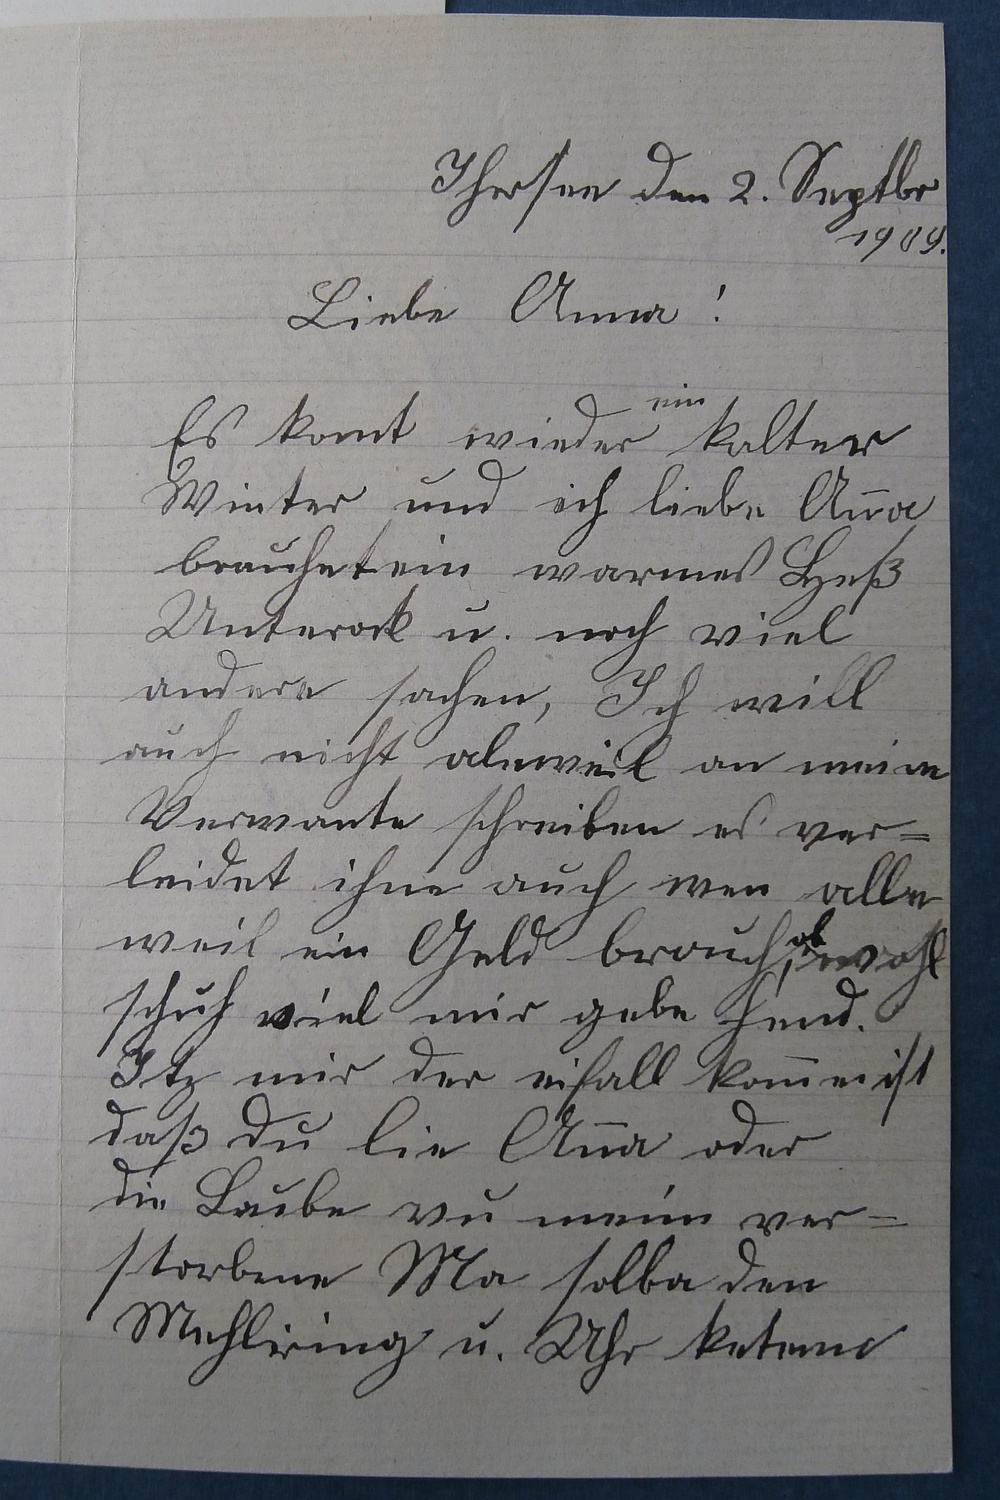 Thersen den 2. Septbr
1909.
Liebe Anna!
Es komt wieder ein kalter
Winter und ich liebe Ana
brauchet ein warmes
Unterock u. noch viel
andere sachen, Ich will
auch nicht aleweil an meine
Verwante schreiben es ver=
leidet ihne auch wen alle
weil ein Geld brauch, ob wohl
schuh viel mir gebe hend.
Itz mir der eifall komme ist
daß du lie Ana oder
die Laube vu meim ver=
storbene Ma solba den
Mehlring u. Uhr ketene